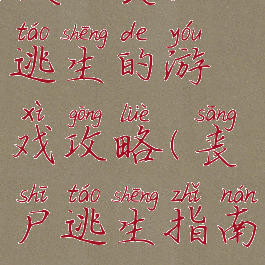 táo shēng de yóu
逃生的游
xì gōng lüè sāng
戏攻略(丧
shī táo shēng zhǐ nán
尸逃生指南